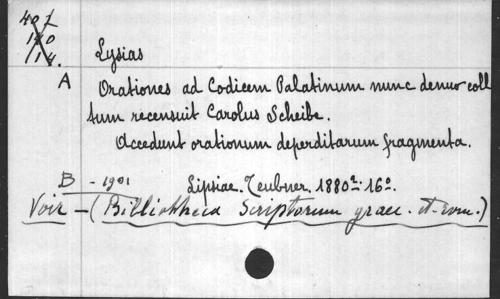 407
140
114.
Lysias
A Orationes ad Codicem Palatinum nunc denuo coll
tum recensuit Carolus Scheibe.
Accedunt orationum deperditarum fragmenta.
B - 1901 Lipsiae. Teubner. 1880. 16º.
Voir - (Bibliotheca Scriptorum graec. et rom.)